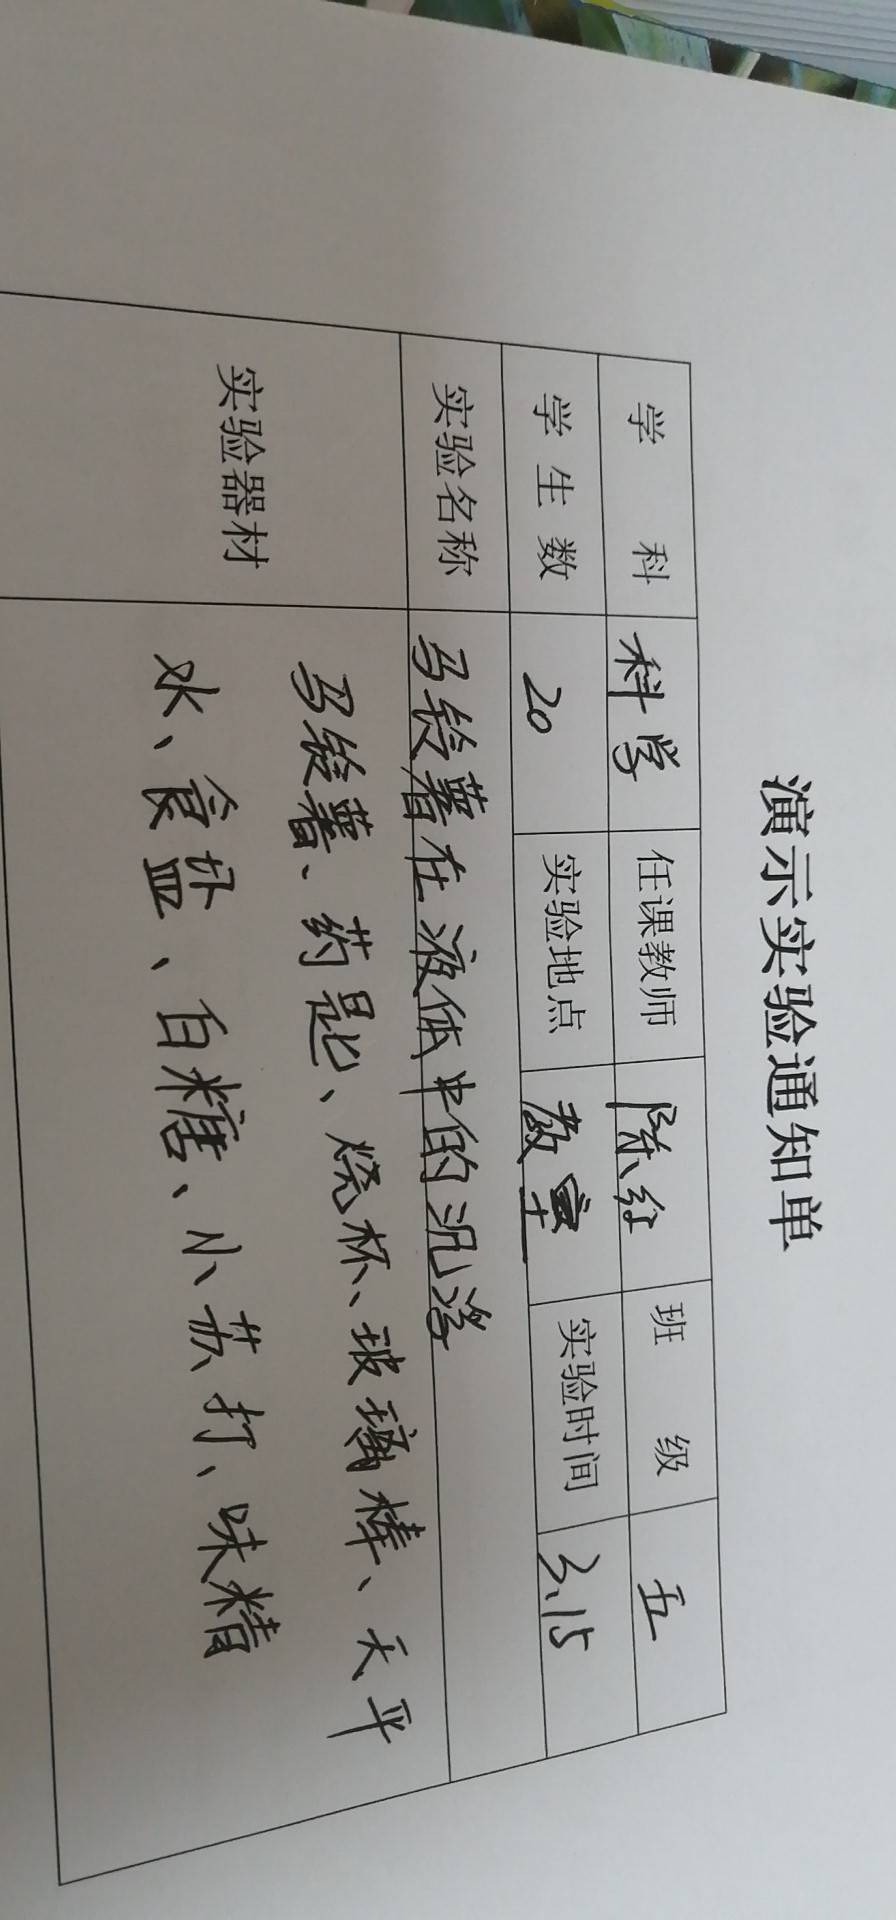 演示实验通知单
学 科 科学 任课教师 陈红 班 级 五
学 生 数 20 实验地点 教室 实验时间 3、15
实验名称 马铃薯在液体中的沉浮
实验器材 马铃薯、药匙、烧杯、玻璃棒、天平
水、食盐、白糖、小苏打、味精